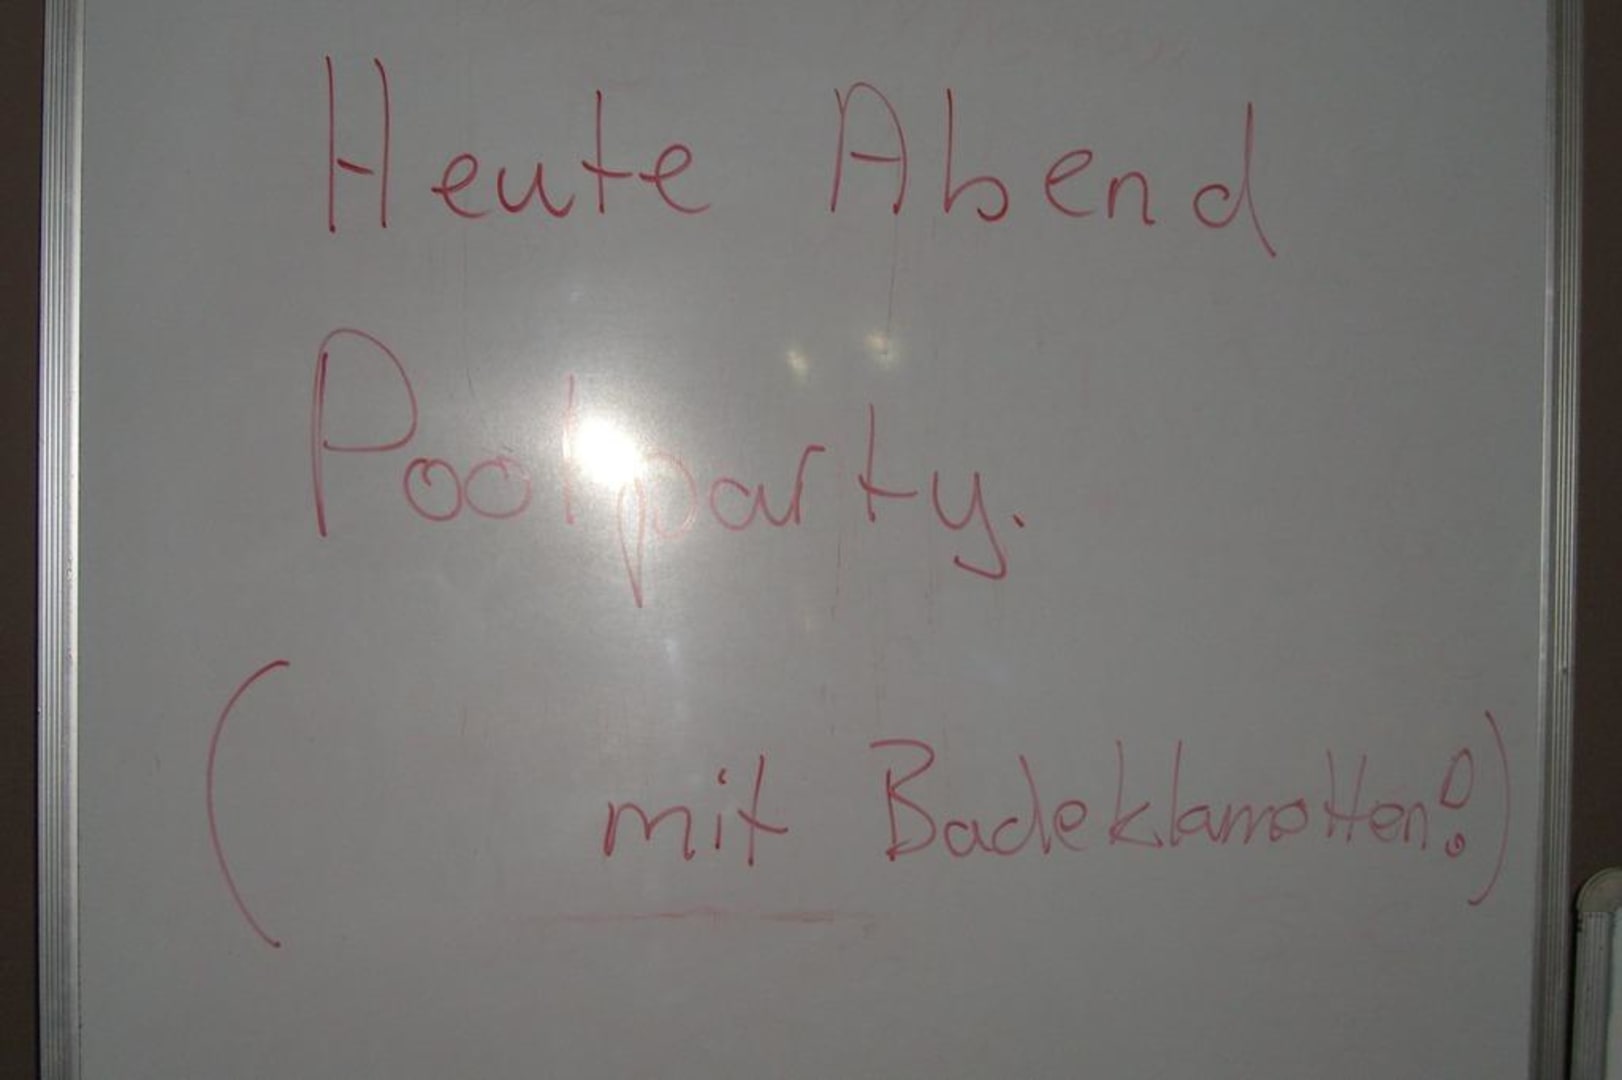 Heute Abend
Poolparty.
( mit Badeklamotten!)